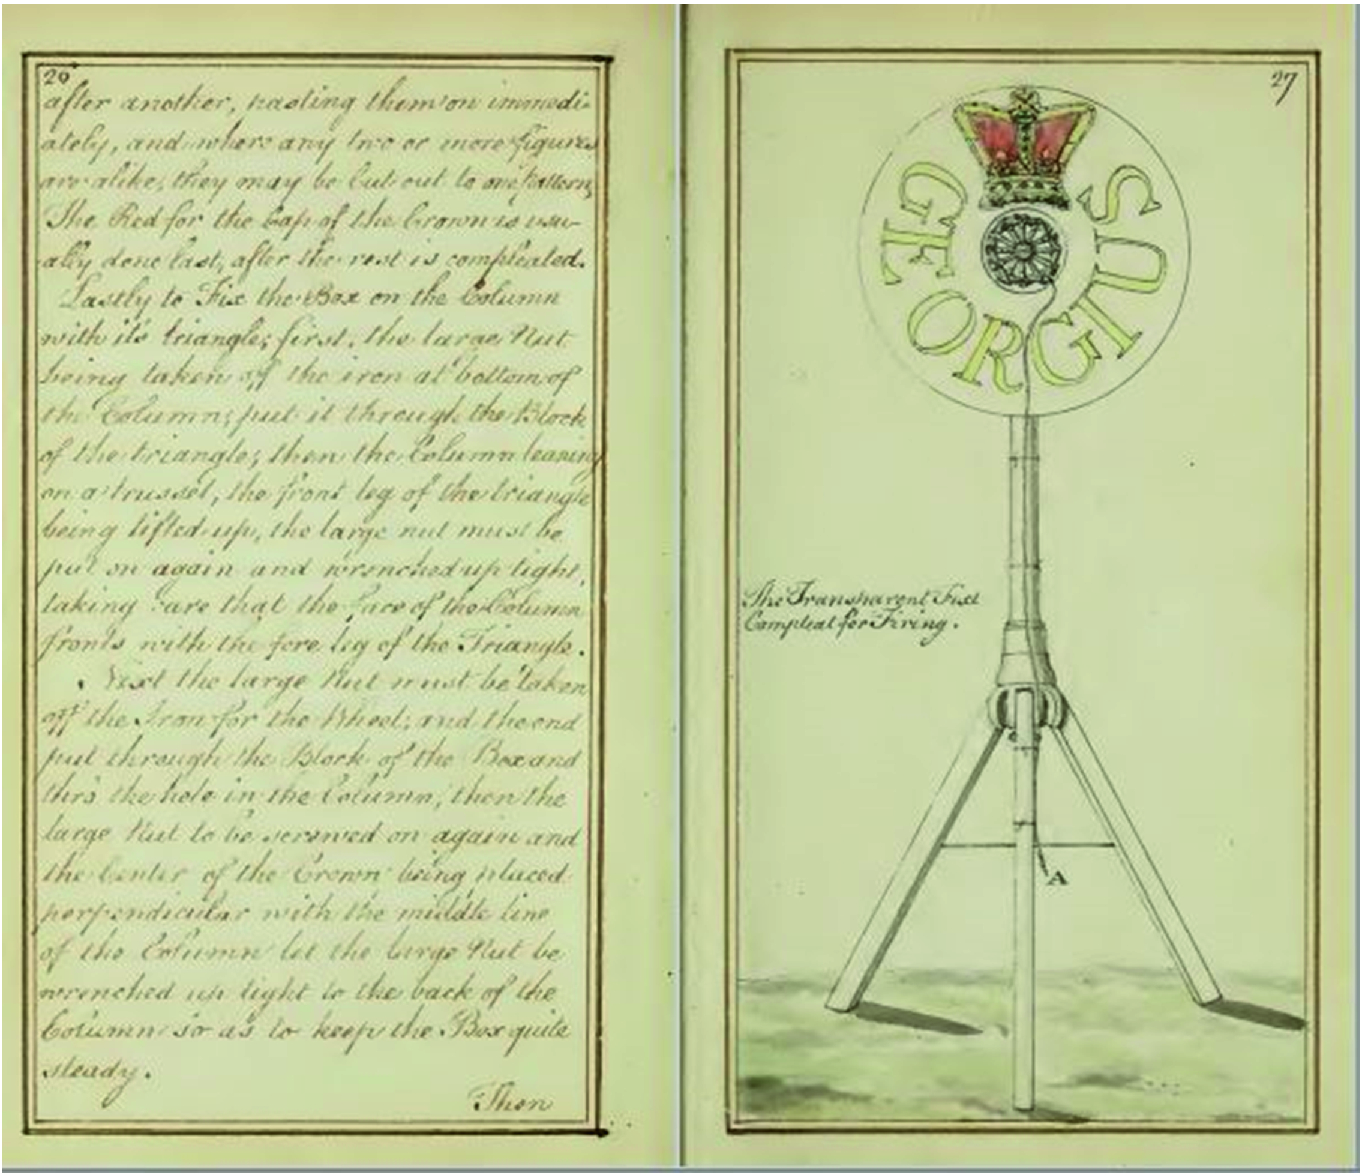 20
after another, pasting them on immedi-
ately, and where any two or more figures
are alike, they may be Cut out to one pattern,
The Red for the Cap of the Crown is usu-
ally done last, after the rest is compleated.
Lastly to Fix the Box on the Column
with it's triangle; first, the large Nut
being taken off the iron at bottom of
the Column; put it through the Block
of the triangle; then the Column leaning
on a trussel, the front leg of the triangle
being lifted up, the large nut must be
put on again and wrenched up tight,
taking care that the face of the Column
fronts with the fore leg of the Triangle.
Next the large Nut must be taken
off the Iron for the Wheel; and the end
put through the Block of the Box and
thro' the hole in the Column; then the
large Nut to be screwed on again and
the Center of the Crown being placed
perpendicular with the middle line
of the Column let the large Nut be
wrenched up tight to the back of the
Column so as to keep the Box quite
steady.
Then
27
GEORGIUS
The Transparent Fixt
Compleat for Firing.
A